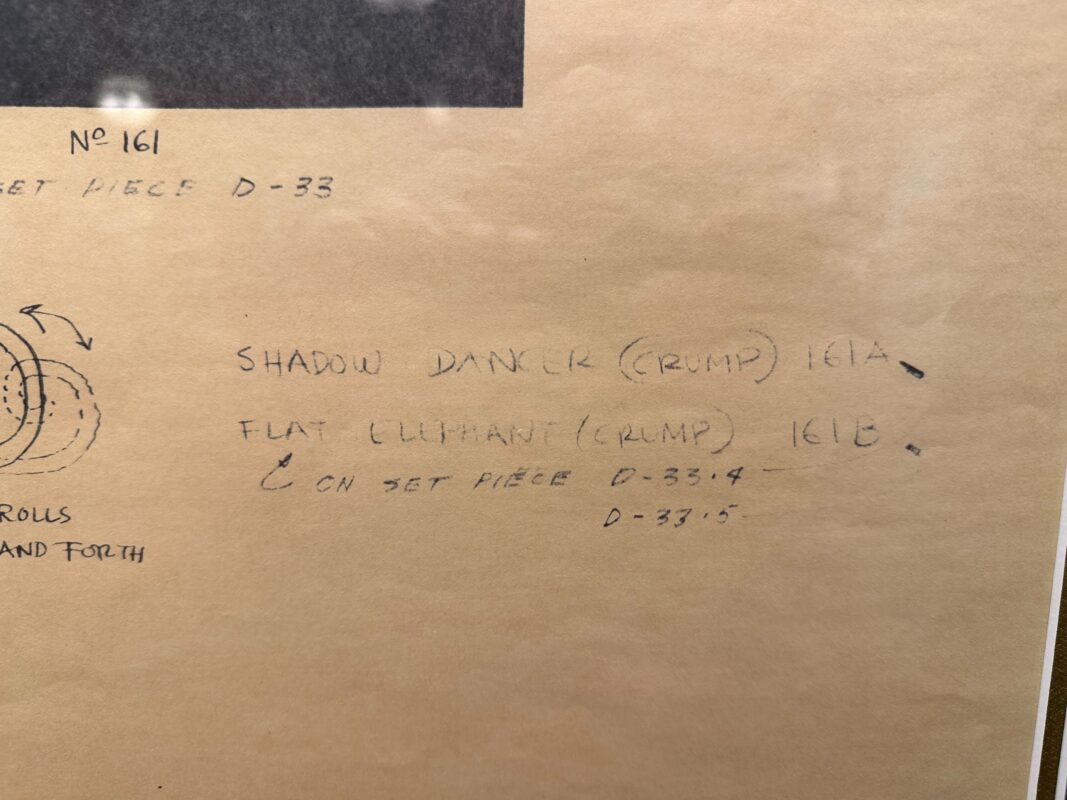 Nº 161
SET PIECE D-33
SHADOW DANCER (CRUMP) 161A
FLAT ELEPHANT (CRUMP) 161B
ON SET PIECE D-33.4
D-33.5
ROLLS
AND FORTH